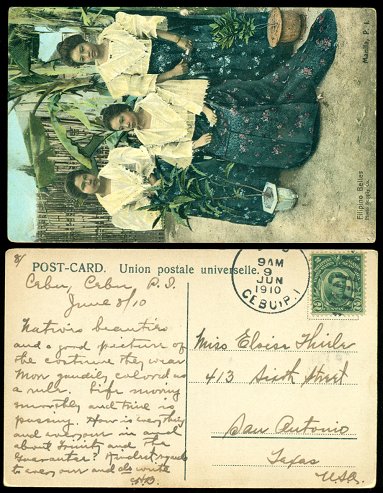 Manila, P. I.
Filipino Belles
POST-CARD. Union postale universelle.
Cebu, Cebu, P.I.
June 8/10
Natives beauties
and a good picture of
the costume they wear
Mon gaudily colored as
a rule. Life moving
smoothly and time is
passing. How is everything
and everyone in and
about Trinity and the
Guarantee? Kindest regards
to everyone and do write
9AM
9
JUN
1910
CEBU, P.I.
Miss Eloise
413 Sixth Street
San Antonio
Texas
USA.